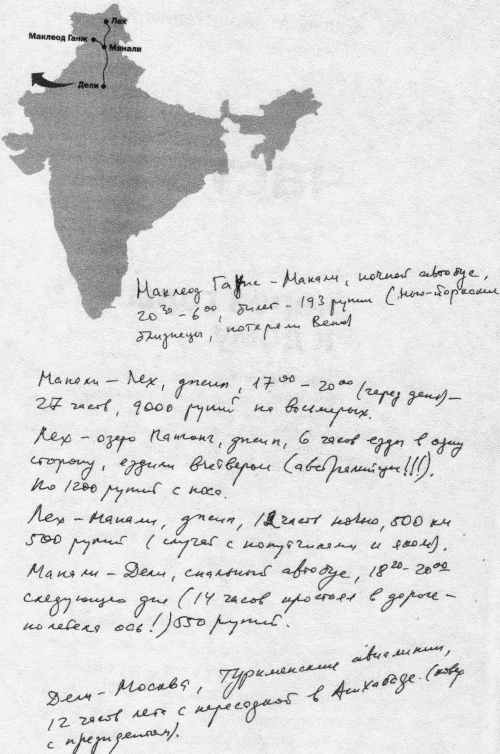 Лех
Маклеод Ганж
Манали
Дели
Маклеод Ганж – Манали, ночной автобус,
20³⁰ – 6⁰⁰, билет – 193 рупии (Нью-Йоркские
близнецы, потеряли Bend
Манали – Лех, джип, 17⁰⁰ – 20⁰⁰ (через день) –
27 часов, 9000 рупий на восьмерых.
Лех – озеро Пагонг, джип, 6 часов езды в одну
сторону, ездили вчетвером (австралийцы!!!).
По 1200 рупий с носа.
Лех – Манали, джип, 12 часов ночью, 500 км
500 рупий (случай с попутчиками и яком).
Манали – Дели, спальный автобус, 18²⁰ – 20⁰⁰
следующего дня (14 часов простоя в дороге –
полетела ось!) 550 рупий.
Дели – Москва, Туркменские авиалинии,
12 часов лета с пересадкой в Ашхабаде. (ковер
с президентом).